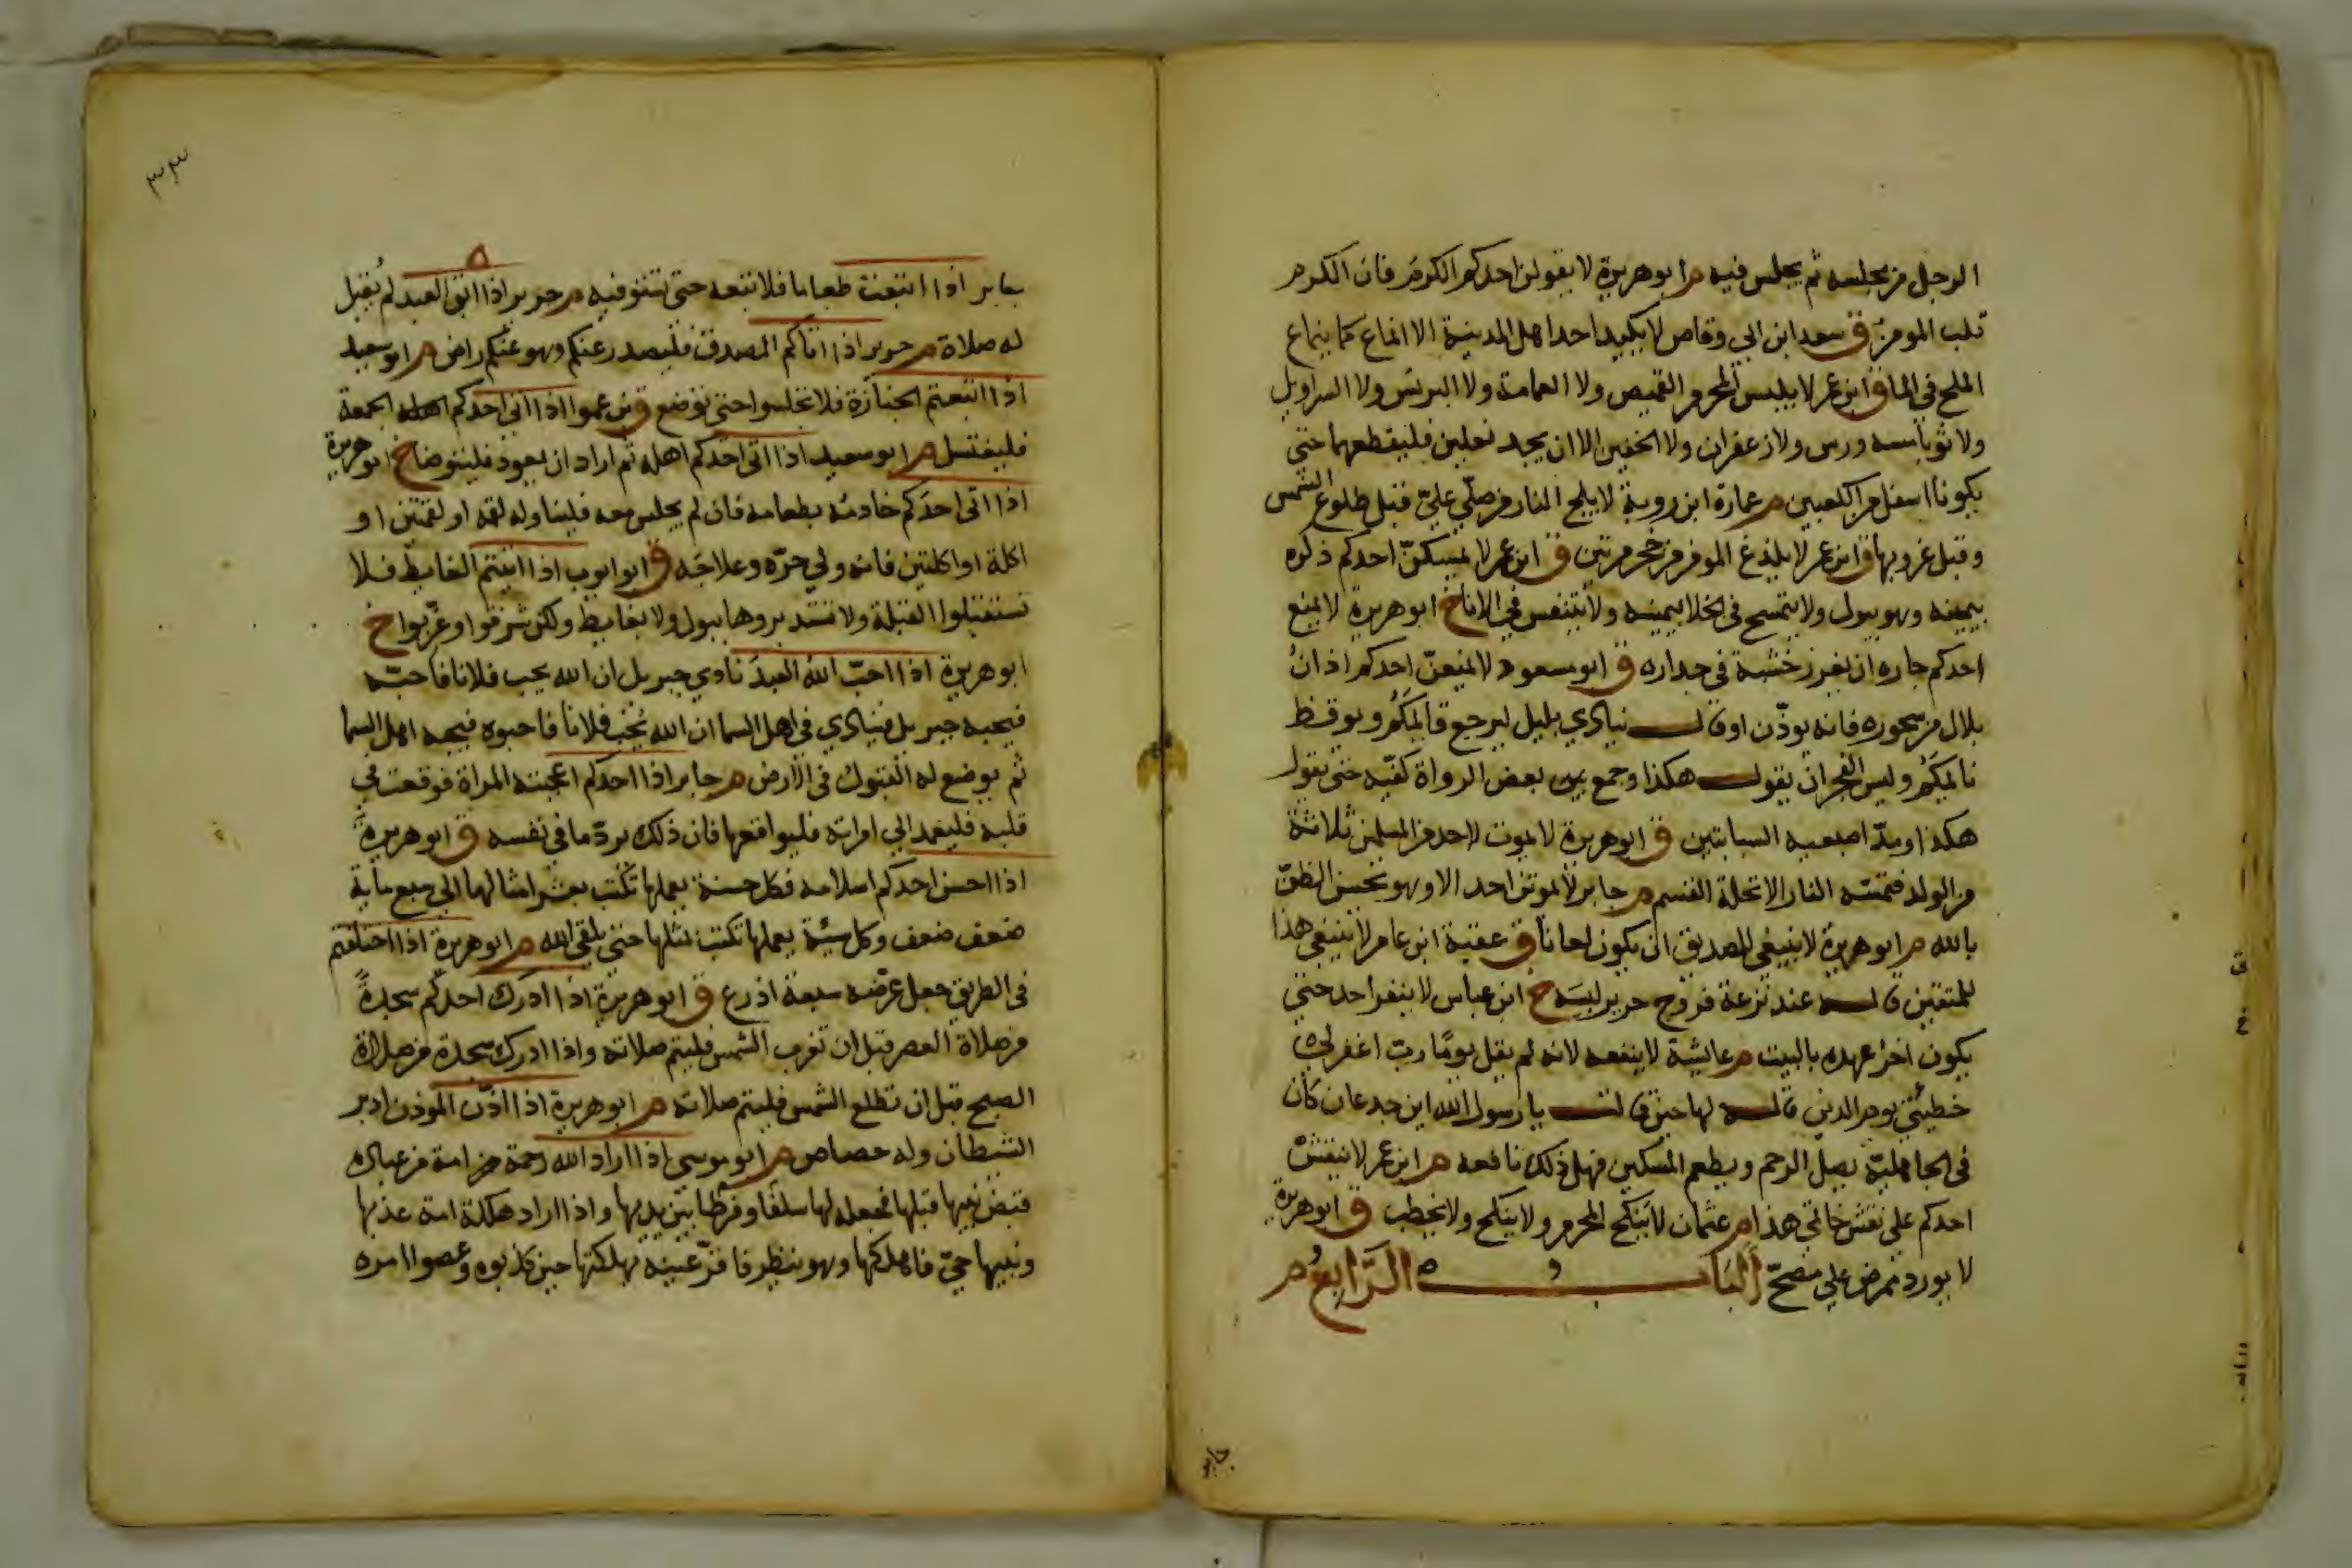 الرجل من مجلسه ثم يجلس فيه م ابو هريرة لا يقولن احدكم الكرم فان الكرم
قلب المومن ق سعد ابن ابي وقاص لا يكيد احد اهل المدينة الا انماع كما ينماع
الملح في الما ق ابن عمر لا يلبس المحرم القميص ولا العمامة ولا البرنس ولا السراويل
ولا ثوبا مسه ورس ولا زعفران ولا الخفين الا ان يجد نعلين فليقطعهما حتى
يكونا اسفل من الكعبين م عمارة ابن روبة لا يلج النار من صلي قبل طلوع الشمس
وقبل غروبها ق ابن عمر لا يلدغ المومن من جحر مرتين ق ابن عمر لا يمسكن احدكم ذكره
بيمينه وهو يبول ولا يتمسح في الخلا بيمينه ولا يتنفس في الانا خ ابو هريرة لا يمنع
احدكم جاره ان يغرز خشبة في جداره ق ابو مسعود لا يمنعن احدكم اذان
بلال من سحوره فانه يوذن او قال ينادي بليل ليرجع قايمكم ويوقظ
نايمكم وليس الفجر ان يقول هكذا وجمع بعض الرواة كفيه حتى يقول
هكذا ومد اصبعيه السبابتين ق ابو هريرة لا يموت لاحد من المسلمين ثلاثة
من الولد فتمسه النار الا تحلة القسم م جابر لا يموتن احد الا وهو يحسن الظن
بالله م ابو هريرة لا ينبغي لصديق ان يكون لعانا ق عقبة ابن عامر لا ينبغي هذا
للمتقين قاله عند نزعه فروج حرير لبسه خ ابن عباس لا ينفر احد حتى
يكون اخر عهده بالبيت م عايشة لا ينفعه لانه لم يقل يوما رب اغفر لي
خطيئتي يوم الدين قاله لها حين قالت يا رسول الله ابن جدعان كان
في الجاهلية يصل الرحم ويطعم المسكين فهل ذلك نافعه م ابن عمر لا ينقش
احدكم على نقش خاتمي هذا م عثمان لا ينكح المحرم ولا ينكح ولا يخطب ق ابو هريرة
لا يورد ممرض علي مصح الباب الرابع م
جابر
٣٣
جابر اذا ابتعت طعاما فلا تبعه حتى تستوفيه م جرير اذا ابق العبد لم يقبل
له صلاة م جرير اذا اتاكم المصدق فليصدر عنكم وهو عنكم راض م ابو سعيد
اذا اتبعتم الجنازة فلا تجلسوا حتى توضع ق ابن عمر اذا اتى احدكم الجمعة
فليغتسل م ابو سعيد اذا اتى احدكم اهله ثم اراد ان يعود فليتوضا خ ابو هريرة
اذا اتى احدكم خادمه بطعامه فان لم يجلس معه فليناوله لقمة او لقمتين او
اكلة او اكلتين فانه ولي حره وعلاجه ق ابو ايوب اذا اتيتم الغايط فلا
تستقبلوا القبلة ولا تستدبروها ببول ولا بغايط ولكن شرقوا او غربوا خ
ابو هريرة اذا احب الله العبد نادي جبريل ان الله يحب فلانا فاحبه
فيحبه جبريل فينادي في اهل السما ان الله يحب فلانا فاحبوه فيحبه اهل السما
ثم يوضع له القبول في الارض م جابر اذا احدكم اعجبته المراة فوقعت في
قلبه فليعمد الي امراته فليواقعها فان ذلك يرد ما في نفسه ق ابو هريرة
اذا احسن احدكم اسلامه فكل حسنة يعملها تكتب بعشر امثالها الي سبع ماية
ضعف ضعف وكل سيئة يعملها تكتب بمثلها حتى يلقى الله م ابو هريرة اذا اختلفتم
في الطريق جعل عرضه سبعة اذرع ق ابو هريرة اذا ادرك احدكم سجدة
من صلاة العصر قبل ان تغرب الشمس فليتم صلاته واذا ادرك سجدة من صلاة
الصبح قبل ان تطلع الشمس فليتم صلاته م ابو هريرة اذا اذن الموذن ادبر
الشيطان وله حصاص م ابو موسى اذا اراد الله رحمة امة من عباده
قبض نبيها قبلها فجعله لها سلفا وفرطا بين يديها واذا اراد هلكة امة عذبها
ونبيها حي فاهلكها وهو ينظر فاقر عينه بهلكتها حين كذبوه وعصوا امره